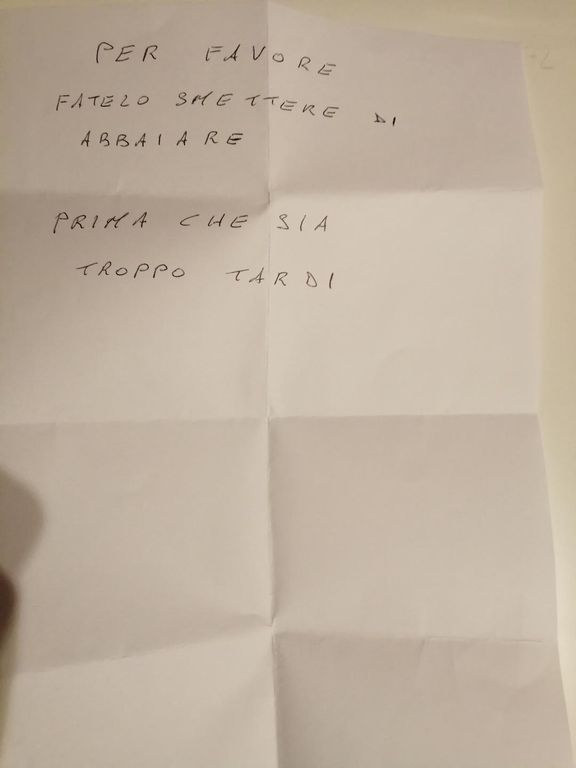 PER FAVORE
FATELO SMETTERE DI
ABBAIARE
PRIMA CHE SIA
TROPPO TARDI